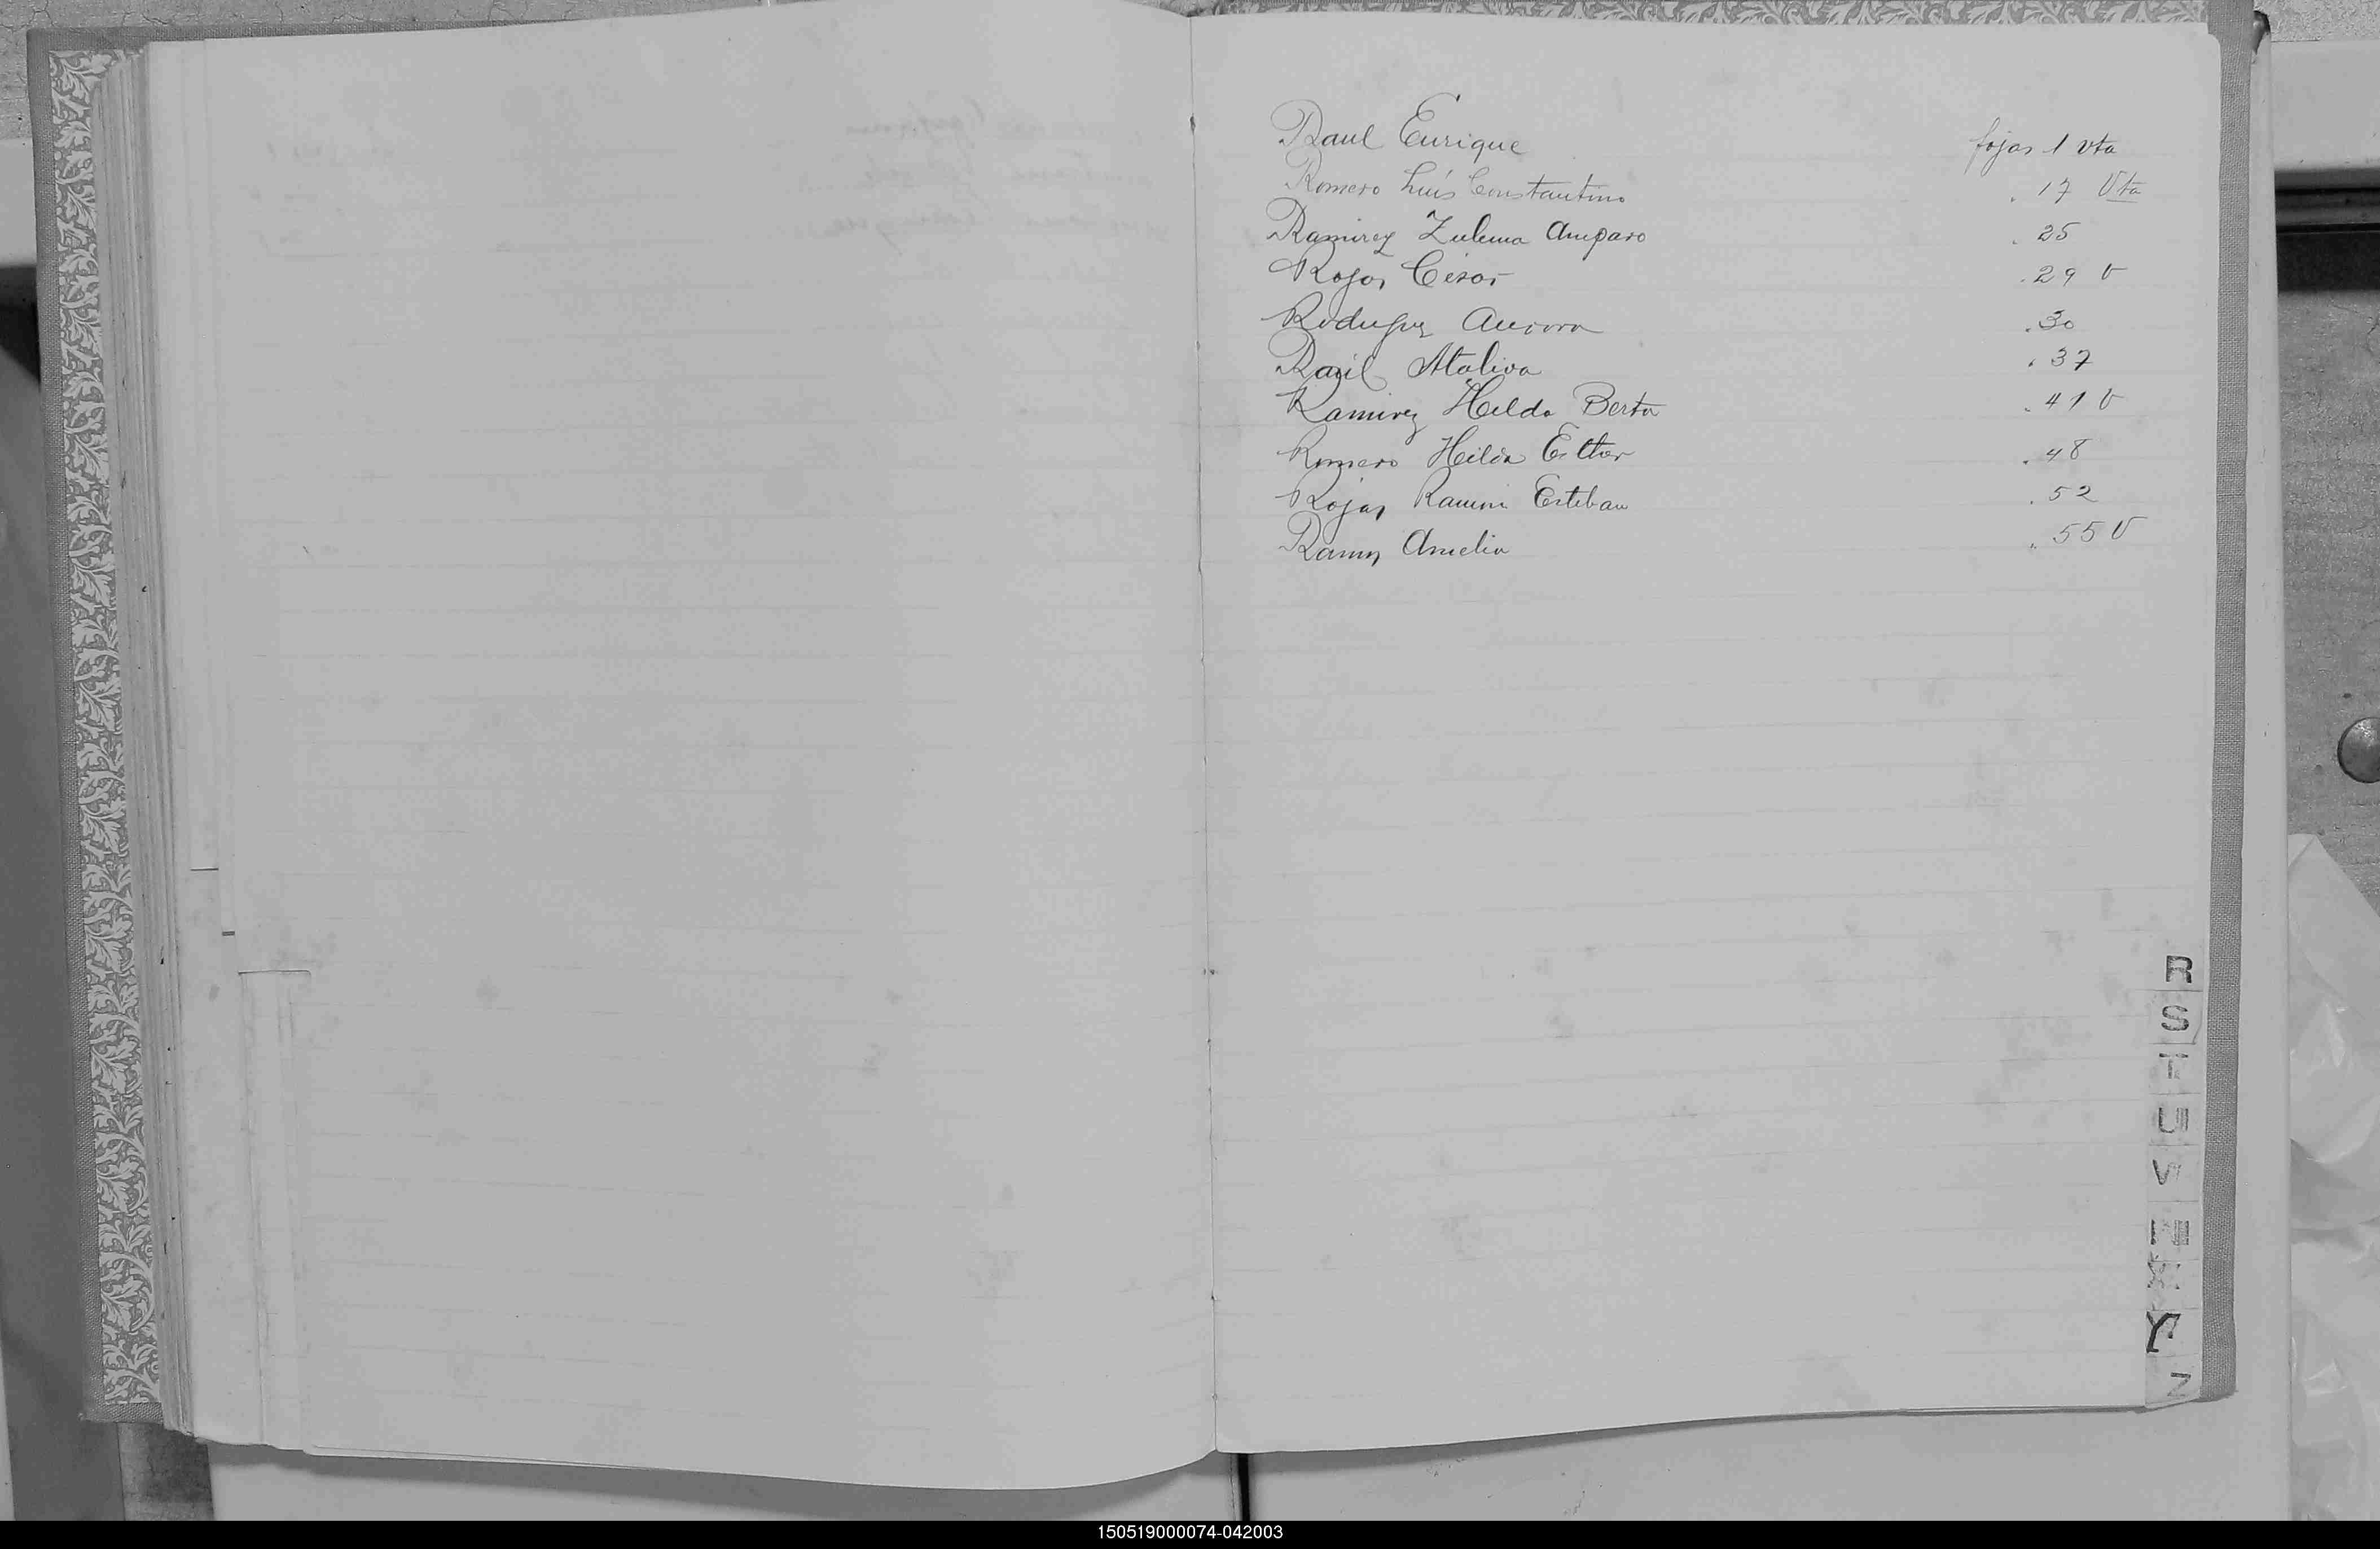 Raul Enrique fojas 1 vta
Romero Luís Constantino " 17 Vta
Ramirez Zulema Amparo " 25
Rojas César " 29 V
Rodriguez Aurora " 30
Raúl Ataliva " 37
Ramirez Hilda Berta " 41 V
Romero Hilda Esther " 48
Rojas Ramón Esteban " 52
Ramos Amelia " 55 V
R
S
T
U
V
Y
Z
150519000074-042003